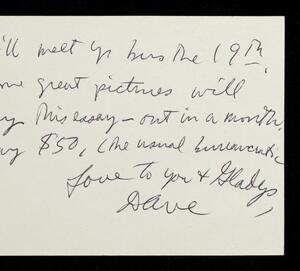 'll meet yr bus the 19th.
me great pictures will
y this essay – out in a month.
ay $50, (the usual bureaucratic
Love to you & Gladys,
Dave